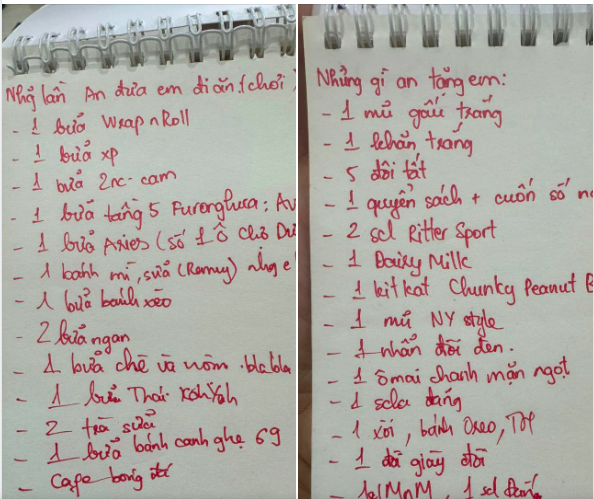 Nhg lần An đưa em đi ăn (chơi)
- 1 bữa Wrap n Roll
- 1 bữa xp
- 1 bữa 2nc-cam
- 1 bữa tầng 5
- 1 bữa Aries (số 1 ô chợ
- 1 bánh mì, sữa (Romy)
- 1 bữa bánh xèo
- 2 bữa ngan
- 1 bữa chè và nộm. blabla
- 1 bữa Thái
- 2 trà sữa
- 1 bữa bánh canh ghẹ 69
- Cafe bóng đá
Những gì an tặng em:
- 1 mũ gấu trắng
- 1 khăn trắng
- 5 đôi tất
- 1 quyển sách + cuốn sổ
- 2 scl Ritter Sport
- 1 Dairy Milk
- 1 kitkat Chunky Peanut B
- 1 mũ NY style
- 1 nhẫn đôi đen.
- 1 ômai chanh mặn ngọt
- 1 scla đắng
- 1 xôi, bánh Oreo,
- 1 đôi giày đôi
MnM, 1 scl đắng